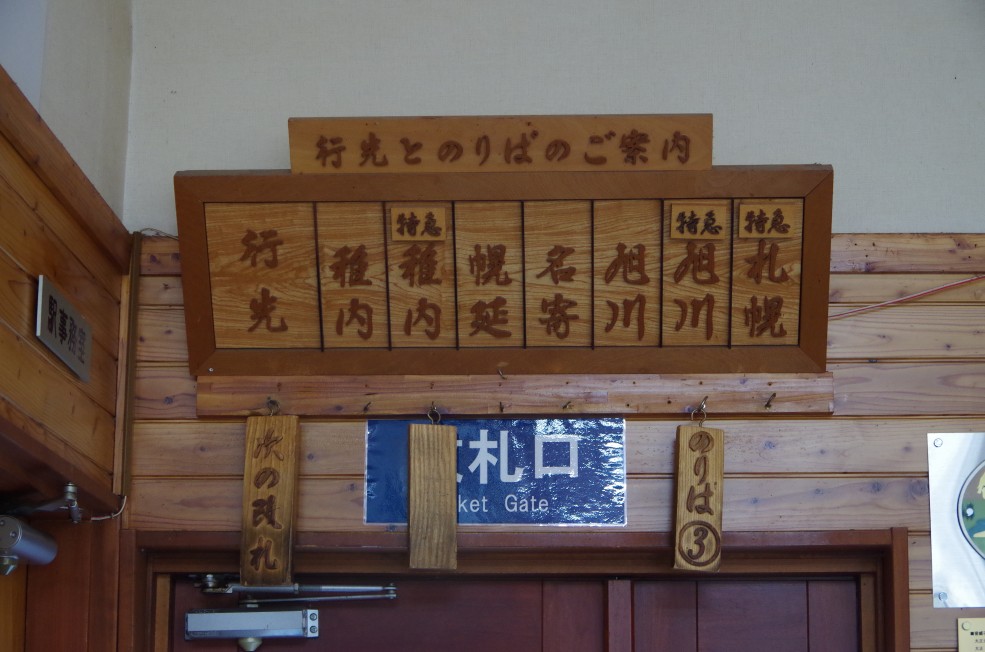 行先とのりばのご案内
行先
稚内
特急
稚内
幌延
名寄
旭川
特急
旭川
特急
札幌
駅事務室
次の改札
札口
ket Gate
のりば③